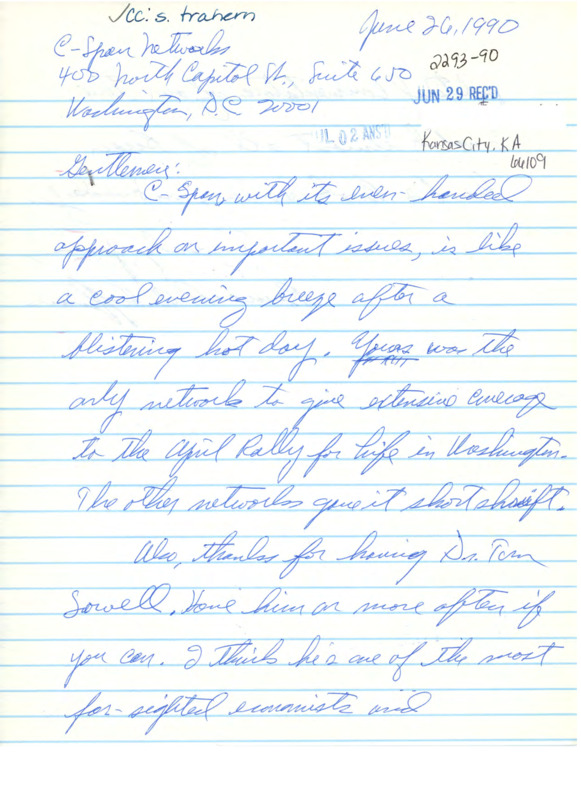 ✓cc: s. trahern
June 26, 1990
C-Span Networks
400 North Capitol St., Suite 650
2293-90
Washington, D.C 20001
JUN 29 REC'D
JUL 02 ANS'D
Kansas City, KA
66109
Gentlemen:
C-Span with its even-handed
approach on important issues, is like
a cool evening breeze after a
blistering hot day. Yours was the
only network to give extensive coverage
to the April Rally for Life in Washington.
The other networks gave it short shrift.
Also, thanks for having Dr. Tom
Sowell. Have him on more often if
you can. I think he's one of the most
far-sighted economists and